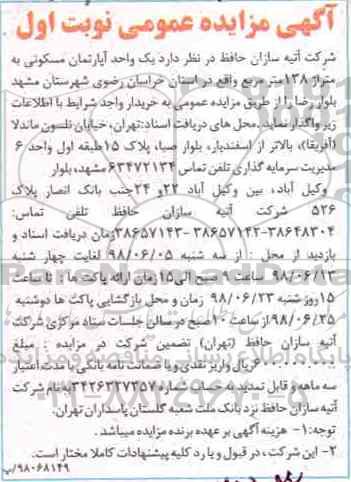 آگهی مزایده عمومی نوبت اول
شرکت آتیه سازان حافظ در نظر دارد یک واحد آپارتمان مسکونی به
متراژ ۱۳۸متر مربع واقع در استان خراسان رضوی شهرستان مشهد
بلوار رضا را از طریق مزایده عمومی به خریدار واجد شرایط با اطلاعات
زیر واگذار نماید.محل های دریافت اسناد:تهران، خیابان نلسون ماندلا
(آفریقا)، بالاتر از اسفندیار، بلوار صبا، پلاک ۱۵طبقه اول واحد ۶
مدیریت سرمایه گذاری تلفن تماس ۶۳۴۷۲۱۳۴مشهد، بلوار
وکیل آباد، بین وکیل آباد ۲۲و ۲۴جنب بانک انصار پلاک
۵۳۶ شرکت آتیه سازان حافظ تلفن تماس:
۳۸۶۴۸۳۰۴-۳۸۶۵۷۱۴۲ -۳۸۶۵۷۱۴۳زمان دریافت اسناد و
بازدید از محل : از سه شنبه ۹۸/۰۶/۰۵ لغایت چهار شنبه
۹۸/۰۶/۱۳ ساعت ۱۰صبح الی۱۵زمان ارائه پاکت ها : تا ساعت
۱۵روز شنبه ۹۸/۰۶/۲۳ زمان و محل بازگشایی پاکت ها دوشنبه
۹۸/۰۶/۲۵از ساعت ۱۰صبح در سالن جلسات ستاد مرکزی شرکت
آتیه سازان حافظ (تهران) تضمین شرکت در مزایده : مبلغ
ریال واریز نقدی و یا ضمانت نامه بانکی با مدت اعتبار
سه ماهه و قابل تمدید به حساب شماره ۳۴۲۶۳۲۷۳۵۷به نام شرکت
آتیه سازان حافظ نزد بانک ملت شعبه گلستان پاسداران تهران.
توجه:۱- هزینه آگهی بر عهده برنده مزایده میباشد.
۲- این شرکت، در قبول و یا رد کلیه پیشنهادات کاملا مختار است.
۹۸۰۶۸۱۴۹/پ
ParsNamadData
پایگاه اطلاع رسانی مناقصه و مزایده
۰۲۱-۸۸۳۴۹۶۷۰-۵